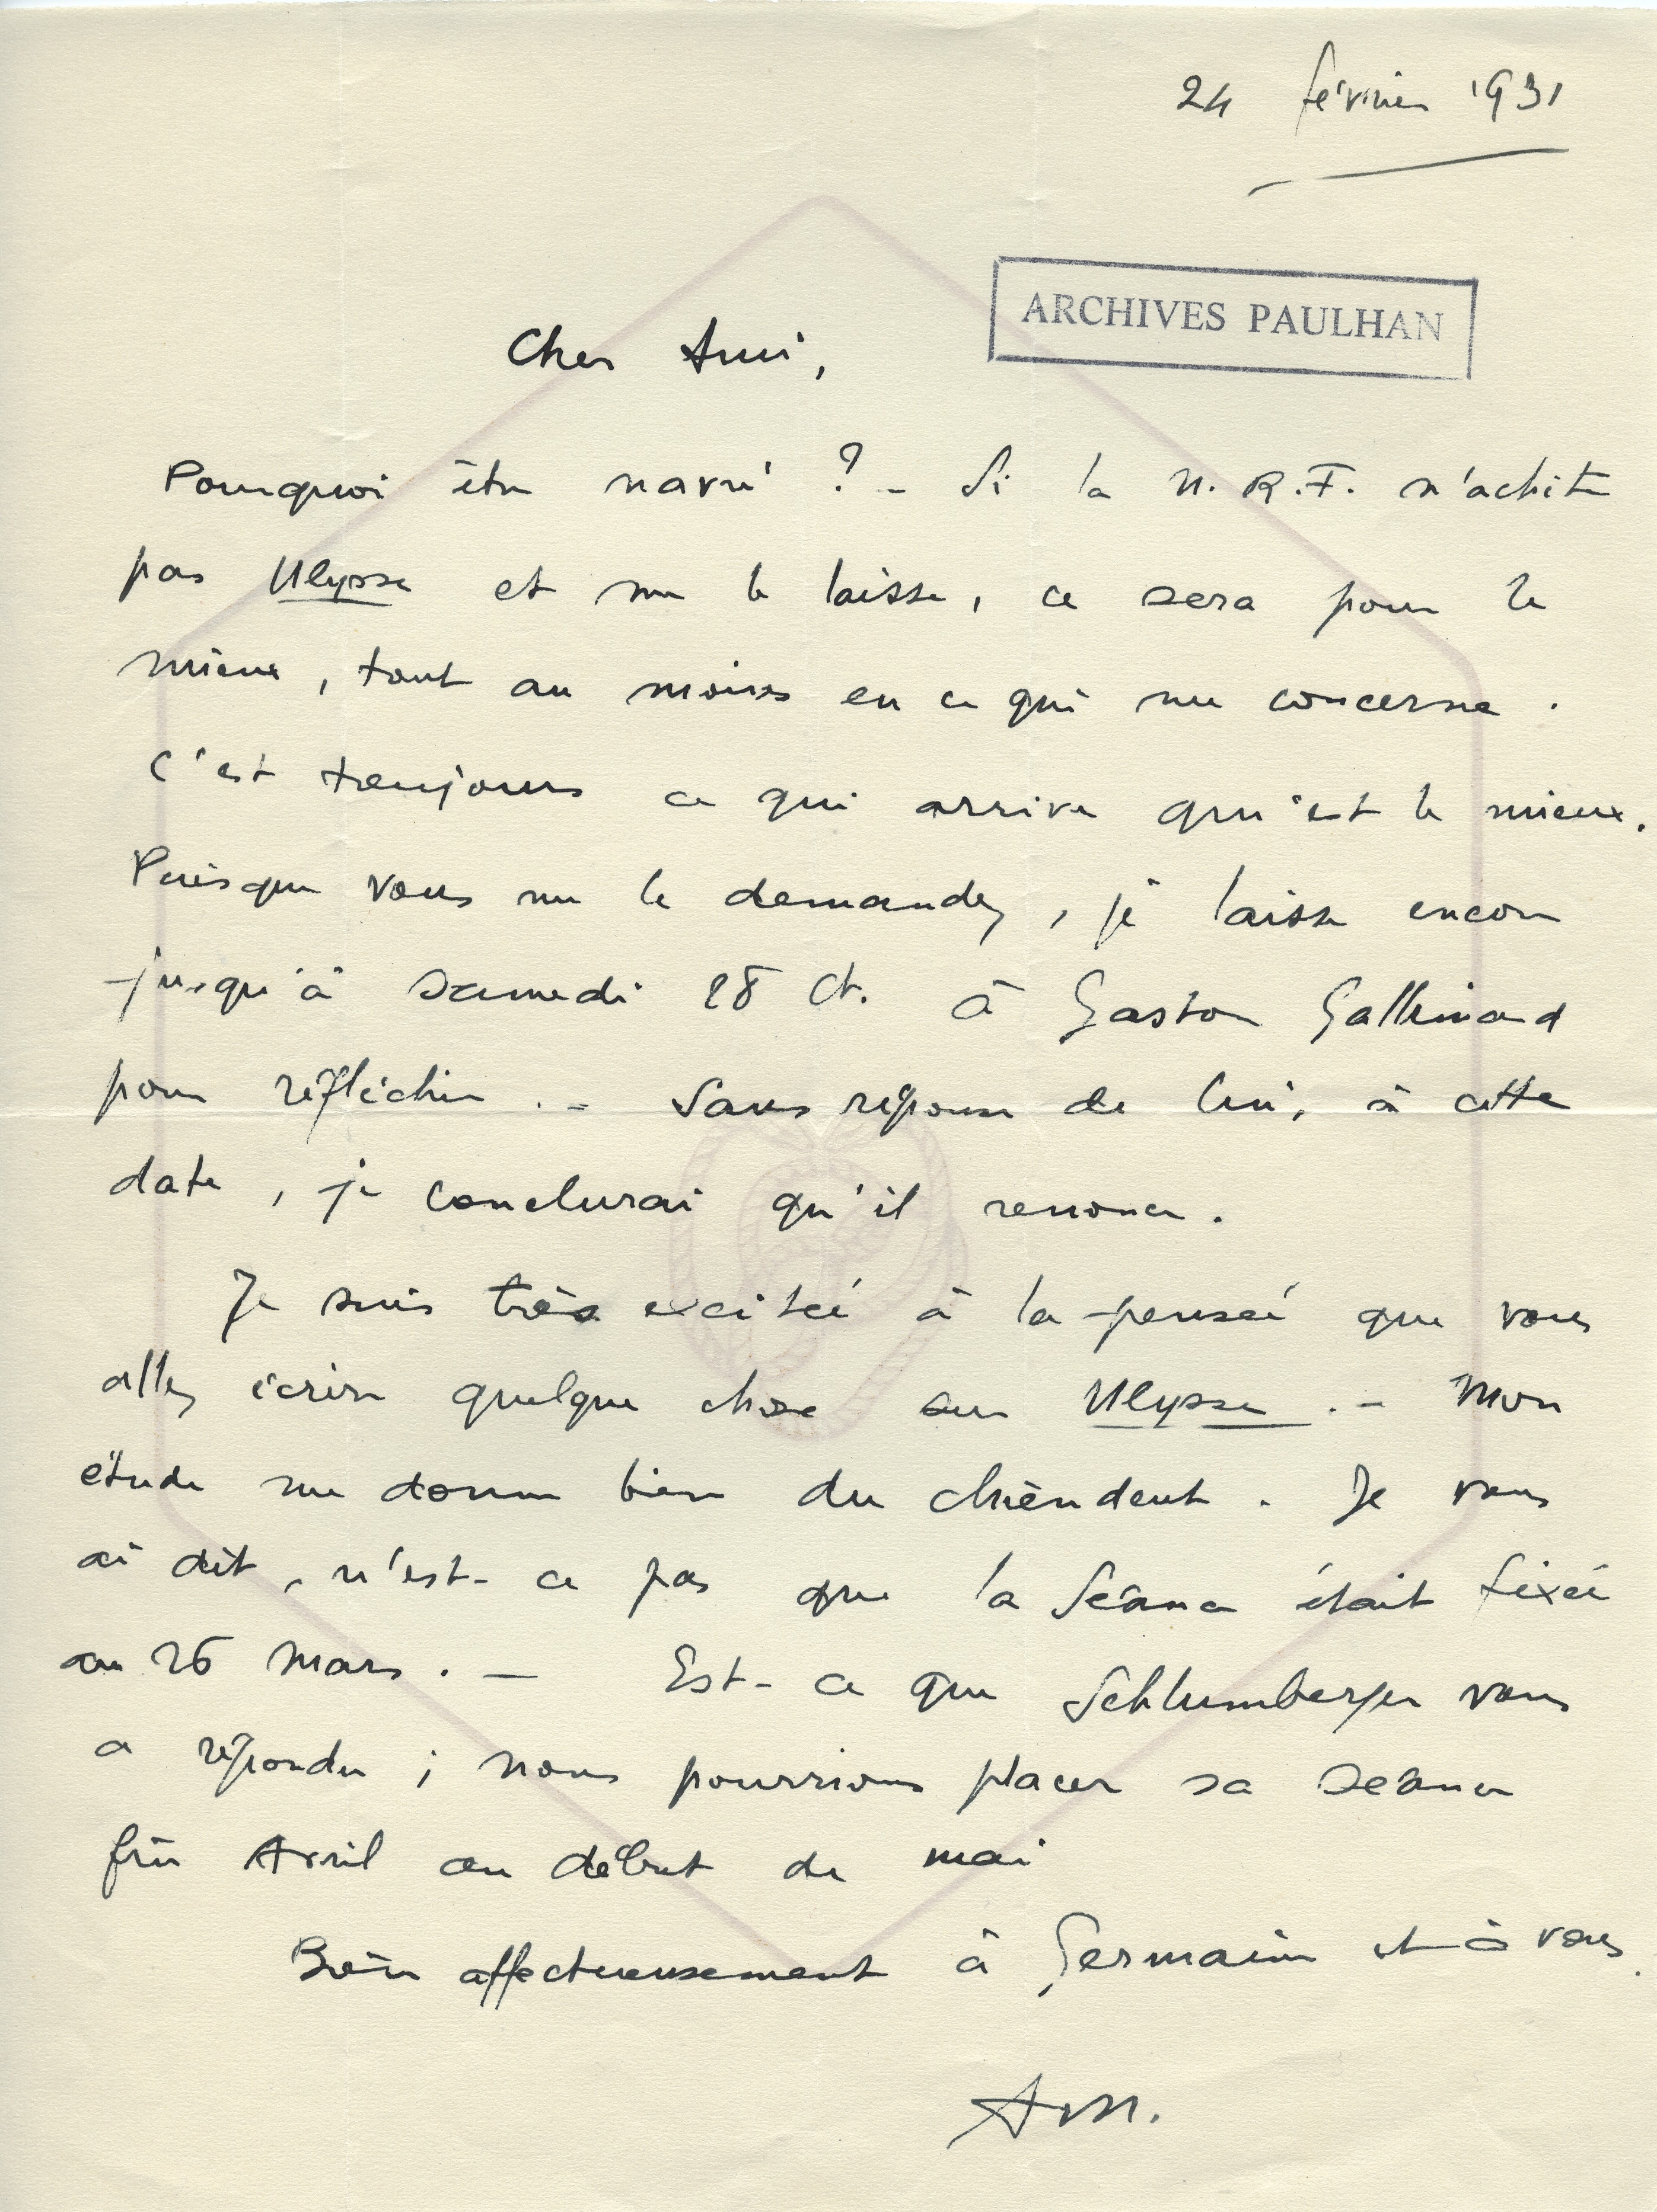 24 février 1931
ARCHIVES PAULHAN
Cher Ami,
Pourquoi être navré ? - Si la N.R.F. n'achète
pas Ulysse et me le laisse, ce sera pour le
mieux, tout au moins en ce qui me concerne.
C'est toujours ce qui arrive qui est le mieux.
Puisque vous me le demandez, je laisse encore
jusqu'à samedi 28 Ct. à Gaston Gallimard
pour réfléchir. - Sans réponse de lui, à cette
date, je conclurai qu'il renonce.
Je suis très excitée à la pensée que vous
allez écrire quelque chose sur Ulysse. - Mon
étude me donne bien du chiendent. Je vous
ai dit, n'est-ce pas que la Séance était fixée
au 26 Mars. - Est-ce que Schlumberger vous
a répondu ; nous pourrions placer sa séance
fin Avril ou début de mai
Bien affectueusement à Germaine et à vous.
AM.